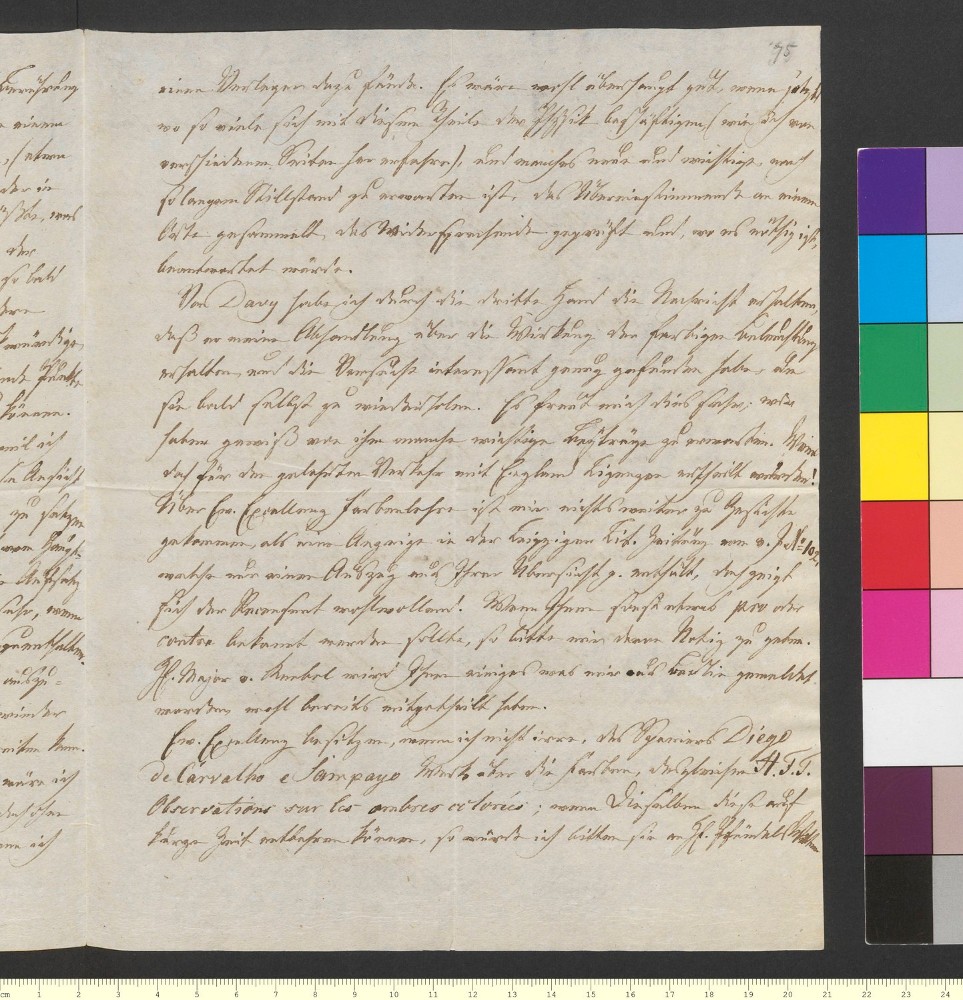 75
einen Verleger dazu fände. Es wäre wohl überhaupt gut, wenn jetzt,
wo so viele sich mit diesem Theile der Physik beschäftigen (wie ich von
verschiedenen Seiten her erfahre), und manches neue und wichtige, nach
so langem Stillstand zu erwarten ist, das Übereinstimmende an einem
Orte gesammelt, das Widersprechende geprüft und, wo es nöthig ist,
beantwortet würde.
Von Davy habe ich durch die dritte Hand die Nachricht erhalten,
daß er meine Abhandlung über die Wirkung der farbigen Beleuchtung
erhalten, und die Versuche interessant genug gefunden habe, um
sie bald selbst zu wiederholen. Es freut mich dies sehr; wir
haben gewiß von ihm manche wichtige Beyträge zu erwarten. Wenn
doch für den gelehrten Verkehr mit England Licenzen ertheilt würden!
Über Ew. Excellenz Farbenlehre ist mir nichts weiter zu Gesichte
gekommen, als eine Anzeige in der Leipziger Lit. Zeitung von v. J. No 102,
welche nur einen Auszug aus Ihrer Übersicht p. enthält, doch zeigt
sich der Recensent wohlwollend. Wenn Ihnen sonst etwas pro oder
contra bekannt werden sollte, so bitte mir davon Notiz zu geben.
H. Major v. Knebel wird Ihnen einiges was mir aus Berlin gemeldet
worden, wohl bereits mitgetheilt haben.
Ew. Excellenz besitzen, wenn ich nicht irre, des Spaniers Diego
de Carvalho e Sampayo Werk über die Farben, desgleichen H. F. T.
Observations sur les ombres colorées; wenn Dieselben diese auf
kurze Zeit entbehren können, so würde ich bitten, sie an H.
Berührung
einem
, (etwa
der in
was
der
so bald
können.
mit ich
Ansicht
zu setzen
wenn
auszu-
wieder
wäre ich
ich
cm 1 2 3 4 5 6 7 8 9 10 11 12 13 14 15 16 17 18 19 20 21 22 23 24